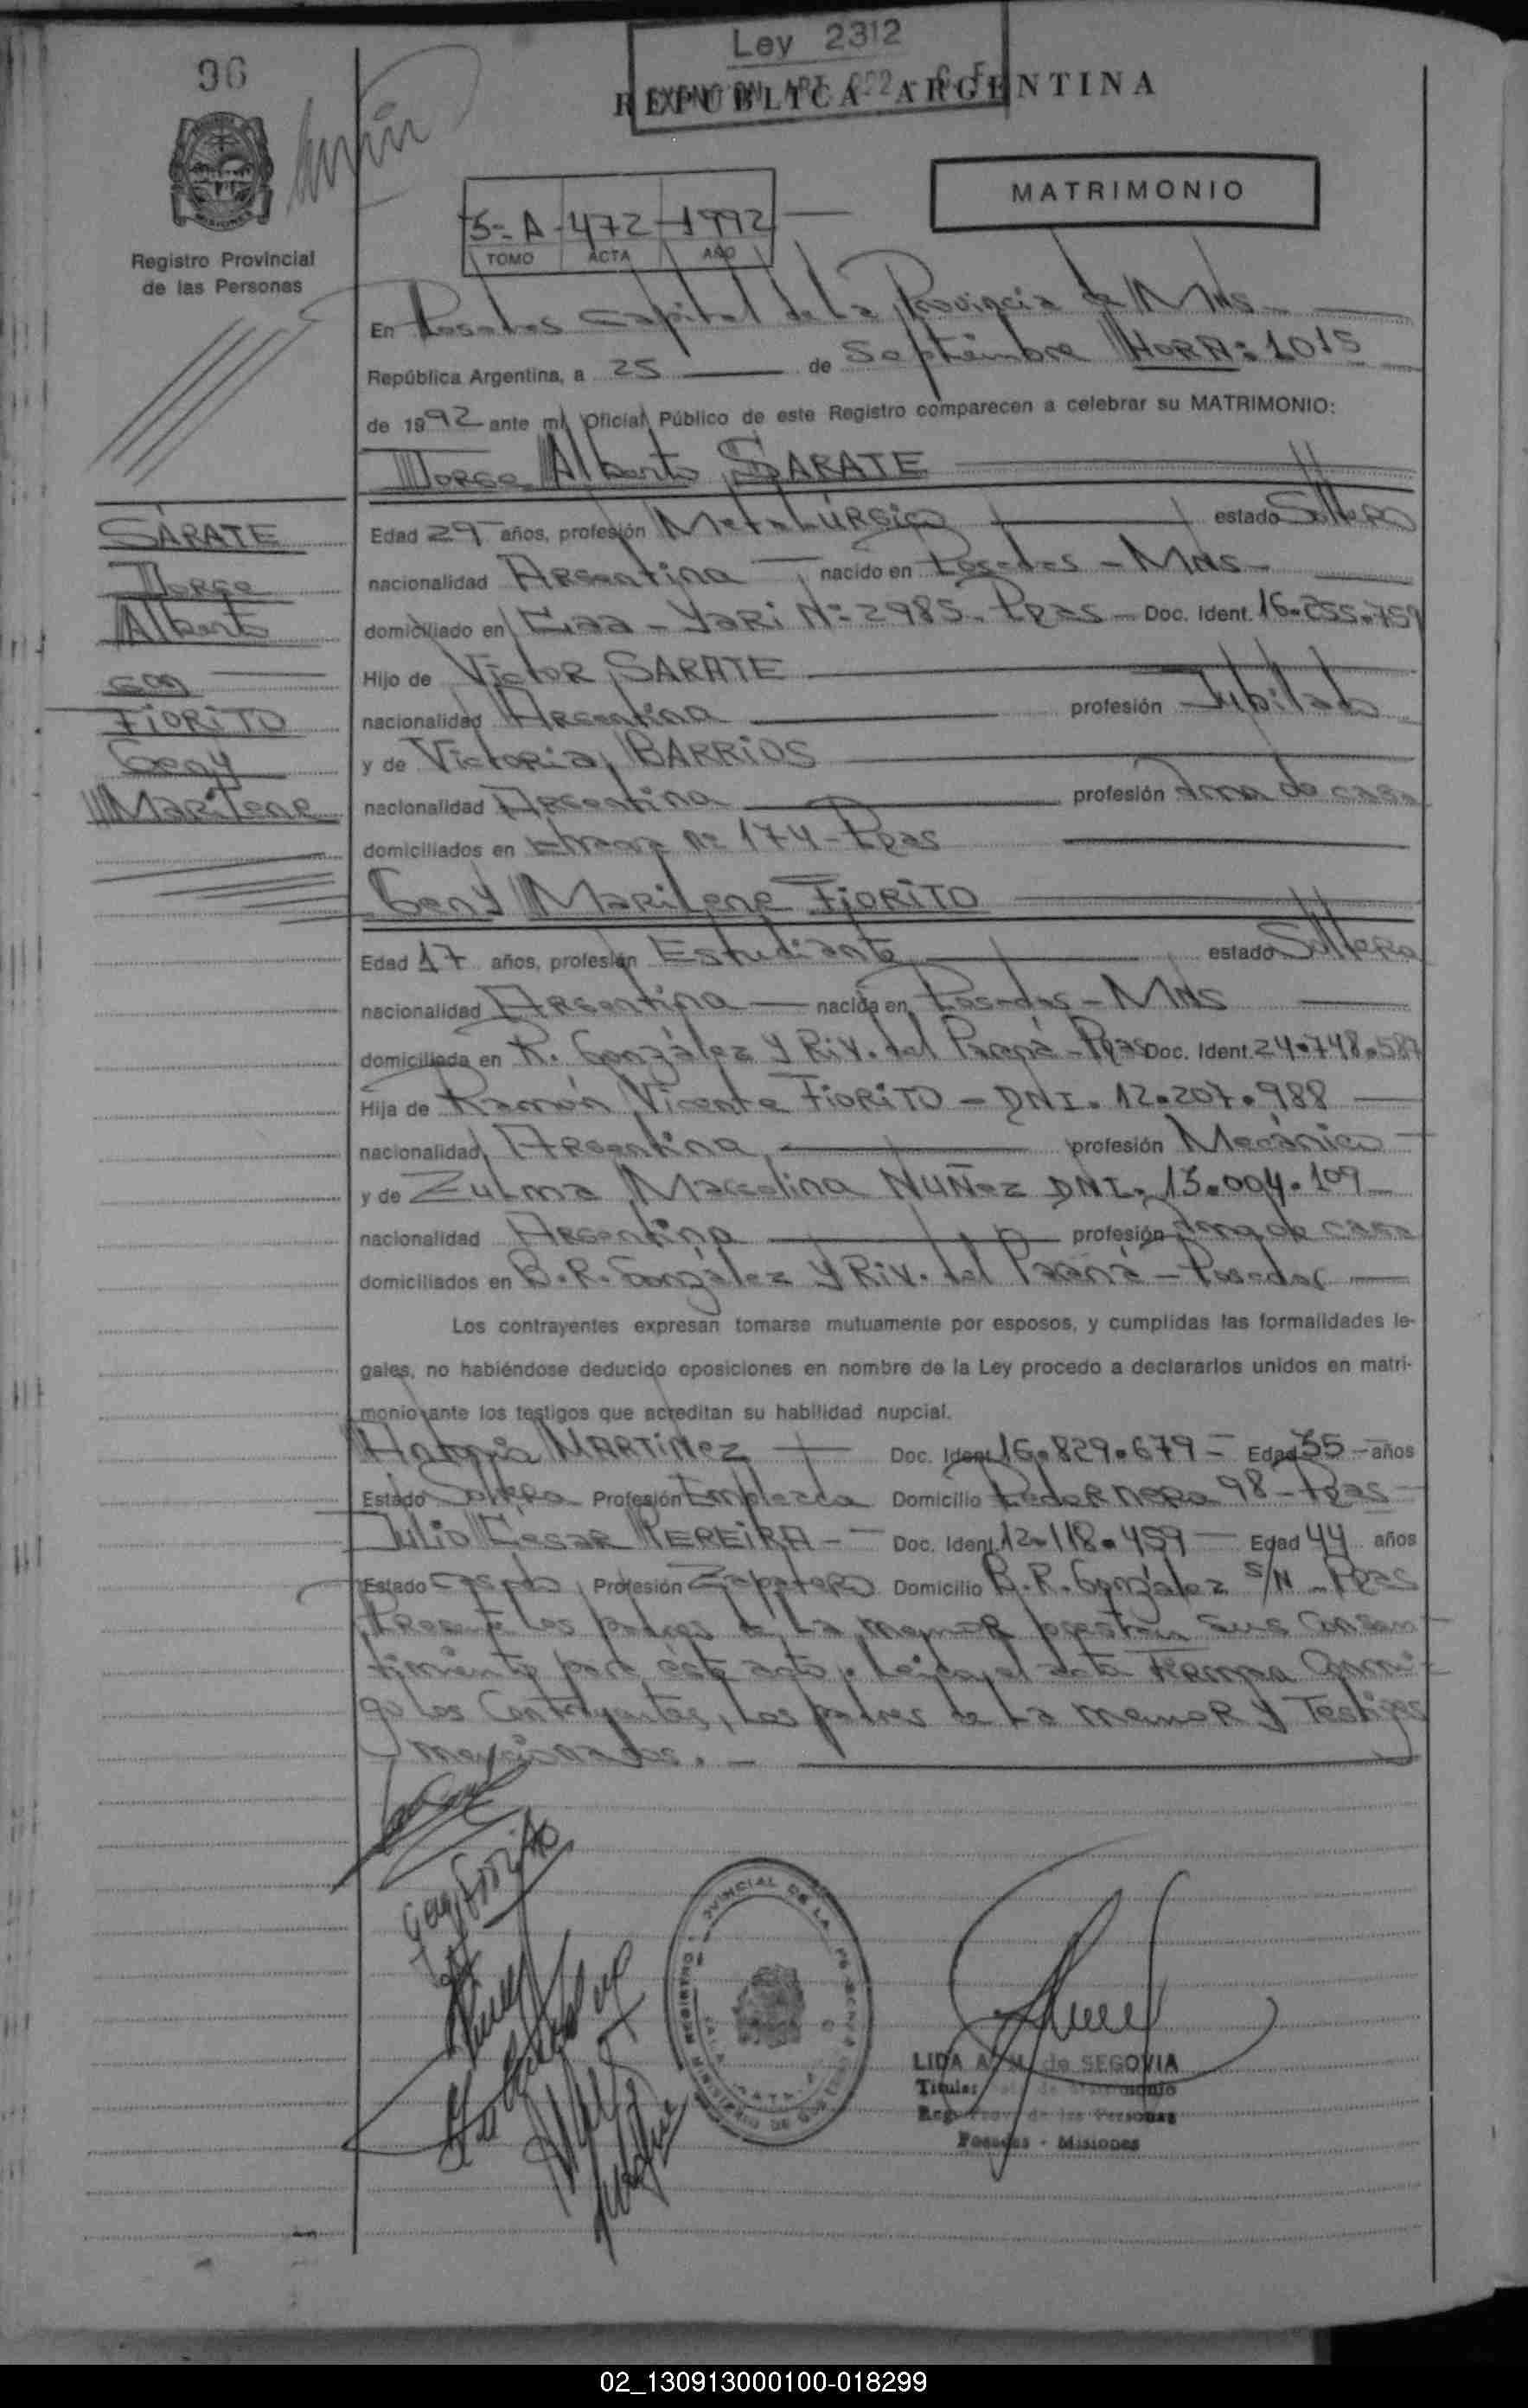 96
Ley 2312
REPUBLICA ARGENTINA
MATRIMONIO
5=A-472-1992
TOMO ACTA AÑO
Registro Provincial
de las Personas
En Posadas Capital de La Provincia de Mns
República Argentina, a 25 de Septiembre HORA: 1015
de 1992 ante mí Oficial Público de este Registro comparecen a celebrar su MATRIMONIO:
Jorge Alberto SARATE
SÁRATE
Jorge
Alberto
con
FIORITO
Geny
Marilene
Edad 29 años, profesión Metalúrgico estado Soltero
nacionalidad Argentina nacido en Posadas - Mns -
domiciliado en Yari Nº 2985 - Pdas - Doc. Ident. 16.255.759
Hijo de Victor SARATE
nacionalidad Argentina profesión Jubilado
y de Victoria BARRIOS
nacionalidad Argentina profesión Ama de casa
domiciliados en Nº 174 - Pdas
Geny Marilene FIORITO
Edad 17 años, profesión Estudiante estado Soltera
nacionalidad Argentina nacida en Posadas - Mns
domiciliada en R. González y Riv. del Paraná - Pdas Doc. Ident. 24.748.587
Hija de Ramón Vicente FIORITO - DNI. 12.207.988
nacionalidad Argentina profesión Mecánico
y de Zulma Marcelina NUÑez DNI. 13.004.109
nacionalidad Argentina profesión Ama de casa
domiciliados en B. R. González y Riv. del Paraná - Posadas
Los contrayentes expresan tomarse mutuamente por esposos, y cumplidas las formalidades le-
gales, no habiéndose deducido oposiciones en nombre de la Ley procedo a declararlos unidos en matri-
monio ante los testigos que acreditan su habilidad nupcial.
Antonia MARTINez Doc. Ident. 16.829.679 - Edad 35 - años
Estado Soltera Profesión Empleada Domicilio Pedernera 98 - Pdas
Julio César PEREIRA - Doc. Ident. 12.118.459 - Edad 44 años
Estado Casado Profesión Zapatero Domicilio B. R. González S/N - Pdas
Presente los padres de La menor prestan sus consen-
timiento para éste acto. Leida el acta Firman conmi-
go los Contrayentes, Los padres de La menor y Testigos
mencionados. -
LIDA A. M. de SEGOVIA
Titular
Reg. Prov. de las Personas
Posadas - Misiones
02_130913000100-018299